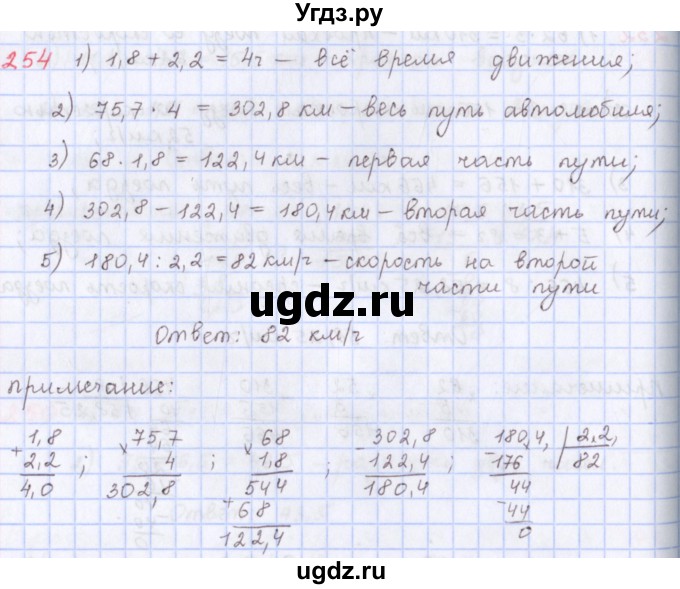 Угдз.ру
254 1) 1,8 + 2,2 = 4ч – всё время движения;
2) 75,7 · 4 = 302,8 км – весь путь автомобиля;
3) 68 · 1,8 = 122,4 км – первая часть пути;
4) 302,8 – 122,4 = 180,4 км – вторая часть пути;
5) 180,4 : 2,2 = 82 км/ч – скорость на второй
части пути
ugdz.ru
Ответ: 82 км/ч
примечание:
+ 1,8 2,2 4,0 ; × 75,7 4 302,8 ; × 68 1,8 544 + 68 122,4 ; - 302,8 122,4 180,4 ; - 180,4, 2,2, 176 82 44 - 44 0
ugdz.ru